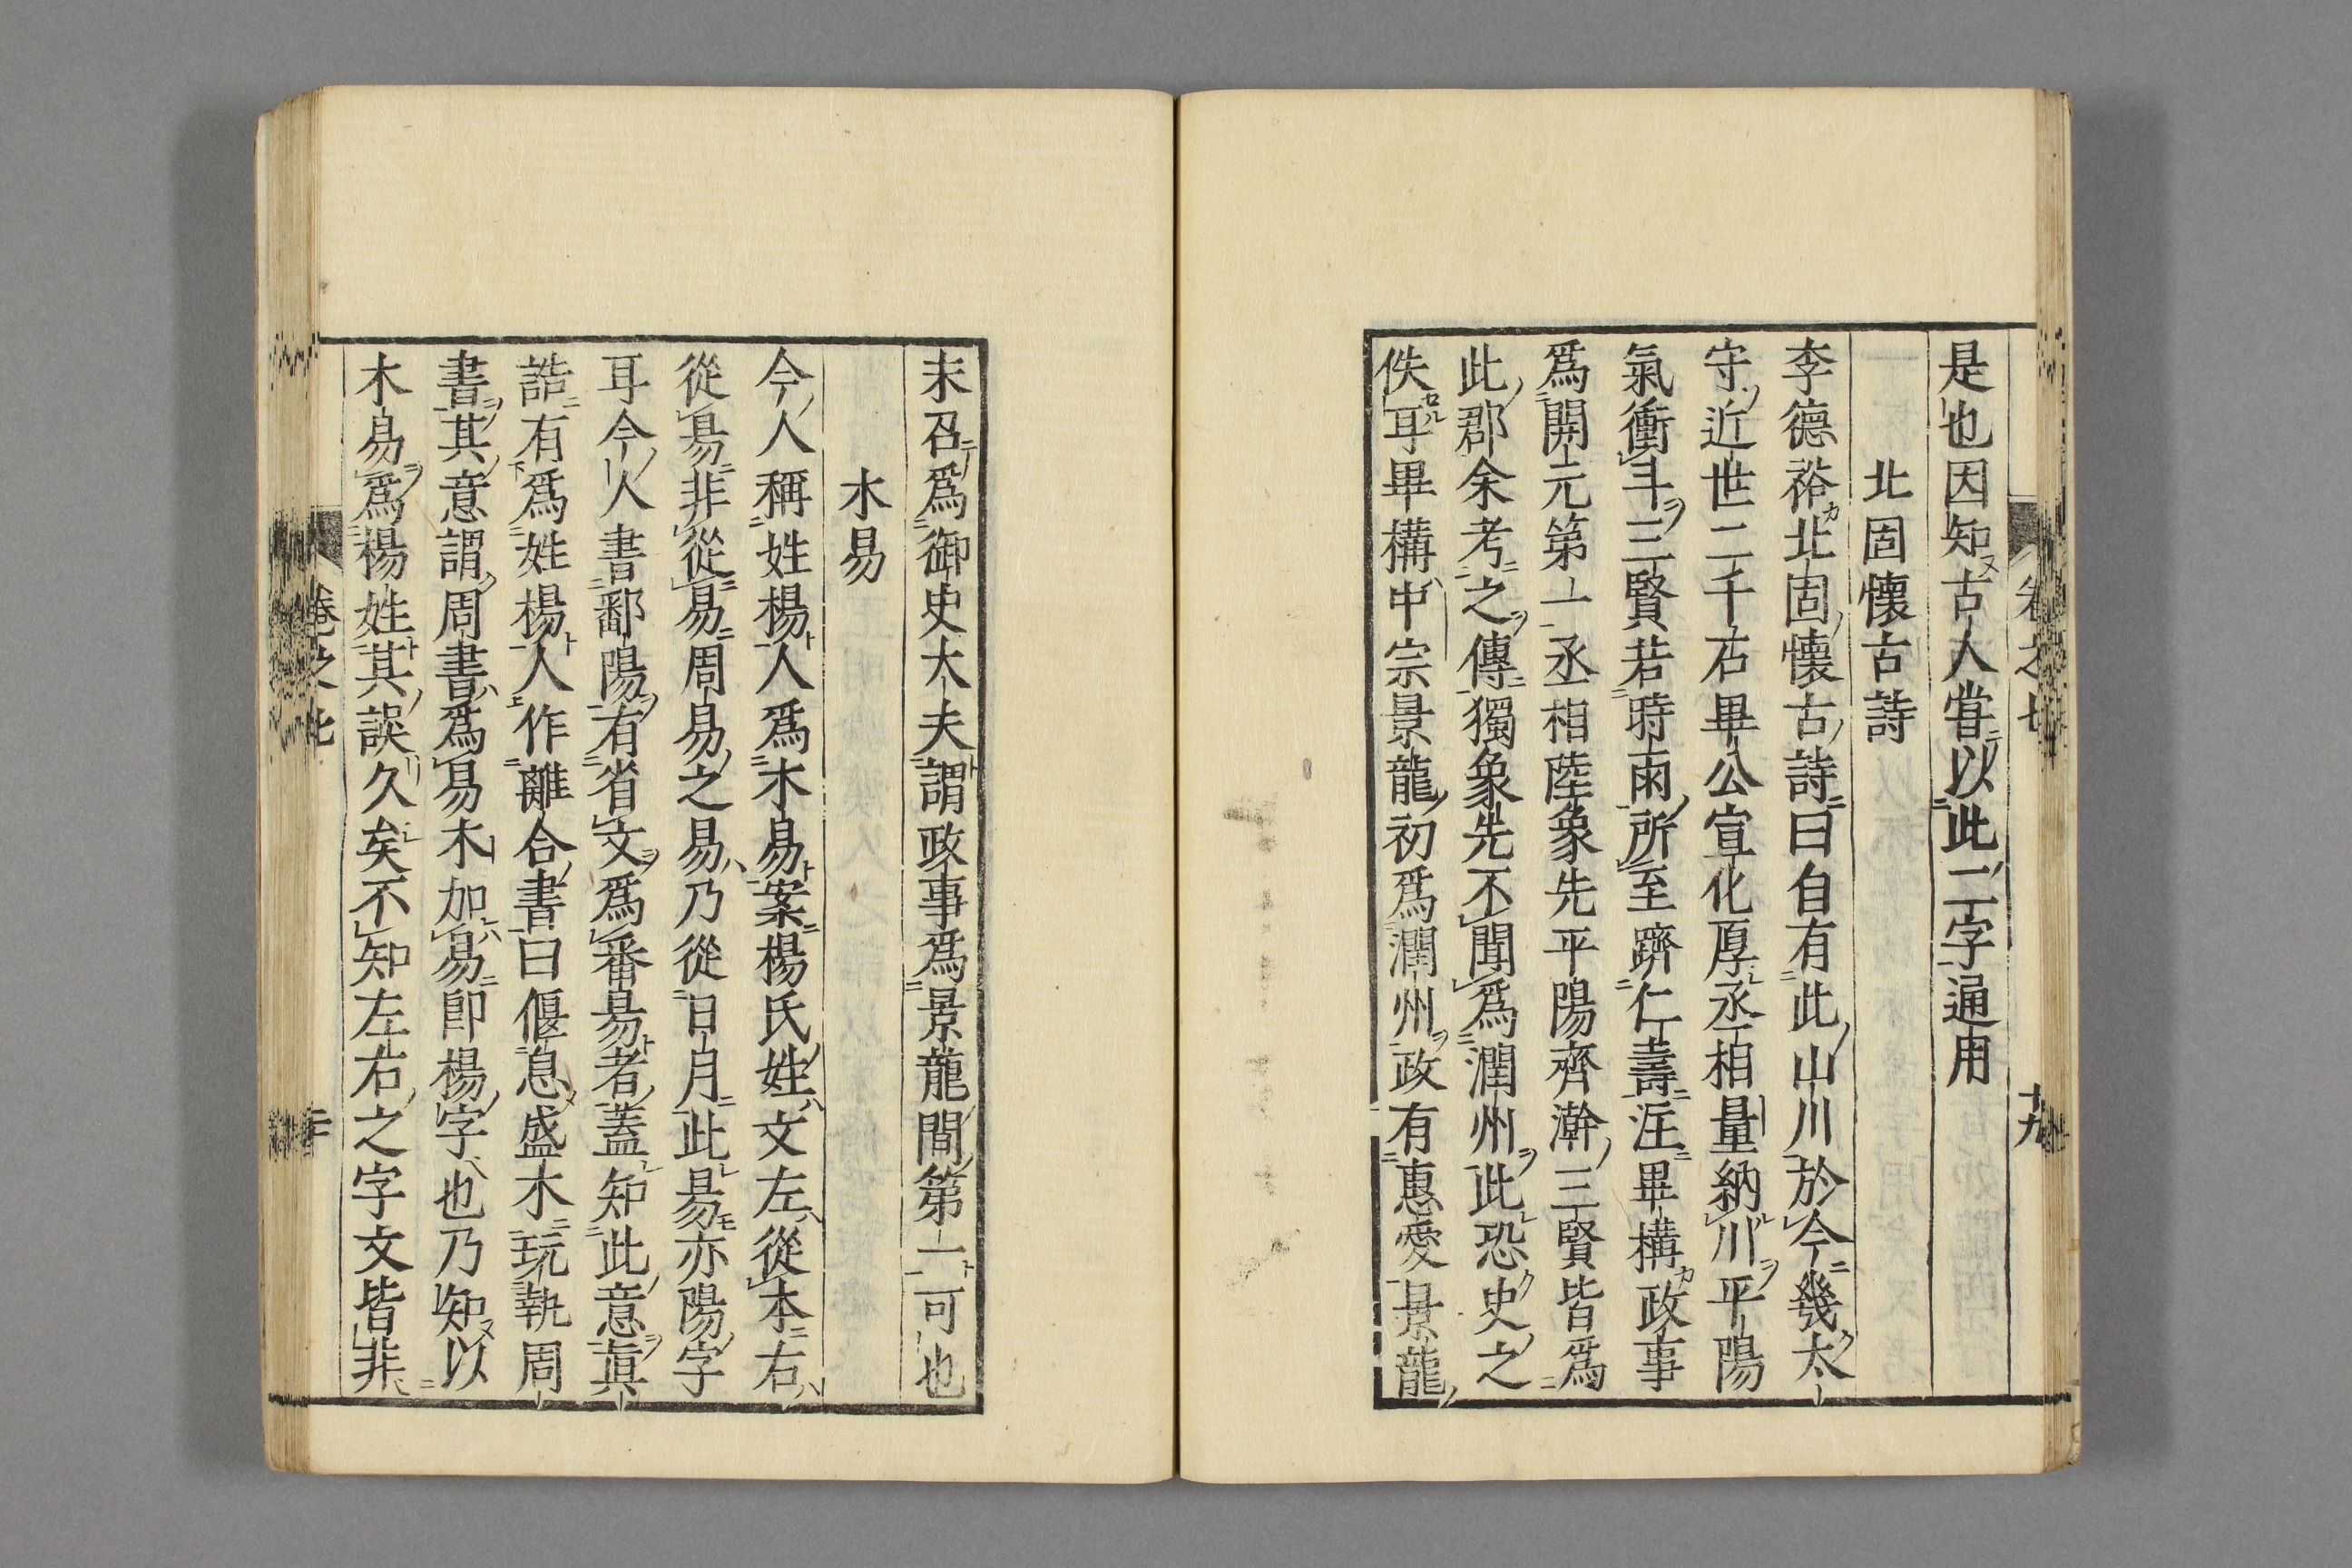 是也因知古人嘗以此二字通用
北固懐古詩
李德裕北固懷古詩曰自有此山川於今幾太
守近世二千石畢公宣化厚丞相量納川平陽
氣衝斗三賢若時雨所至躋仁壽注畢構政事
爲開元第一丞相陸象先平陽齊澣三賢皆爲
此郡余考之傳獨象先不聞爲潤州此恐史之
佚耳畢構中宗景龍初爲潤州政有惠愛景龍
末召爲御史大夫謂政事爲景龍間第一可也
木昜
今人稱姓楊人爲木易案楊氏姓文左從木右
從昜非從易周易之易乃從日月此昜亦陽字
耳今人書鄱陽有省文爲番昜者蓋知此意眞
誥有爲姓楊人作離合書曰偃息盛木玩執周
書其意謂周書爲易木加易即楊字也乃知以
木易爲楊姓其誤久矣不知左右之字文皆非